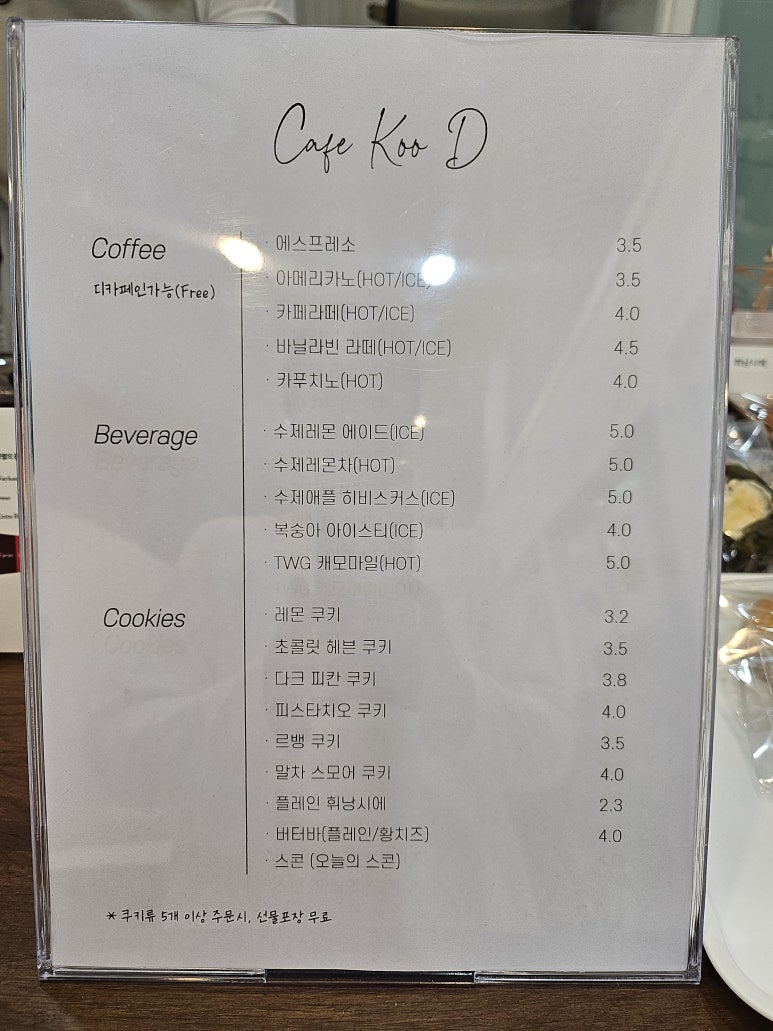 Cafe Koo D
Coffee
디카페인가능(Free)
· 에스프레소 3.5
· 아메리카노(HOT/ICE) 3.5
· 카페라떼(HOT/ICE) 4.0
· 바닐라빈 라떼(HOT/ICE) 4.5
· 카푸치노(HOT) 4.0
Beverage
· 수제레몬 에이드(ICE) 5.0
· 수제레몬차(HOT) 5.0
· 수제애플 히비스커스(ICE) 5.0
· 복숭아 아이스티(ICE) 4.0
· TWG 캐모마일(HOT) 5.0
Cookies
· 레몬 쿠키 3.2
· 초콜릿 헤븐 쿠키 3.5
· 다크 피칸 쿠키 3.8
· 피스타치오 쿠키 4.0
· 르뱅 쿠키 3.5
· 말차 스모어 쿠키 4.0
· 플레인 휘낭시에 2.3
· 버터바(플레인/황치즈) 4.0
· 스콘 (오늘의 스콘)
* 쿠키류 5개 이상 주문시, 선물포장 무료